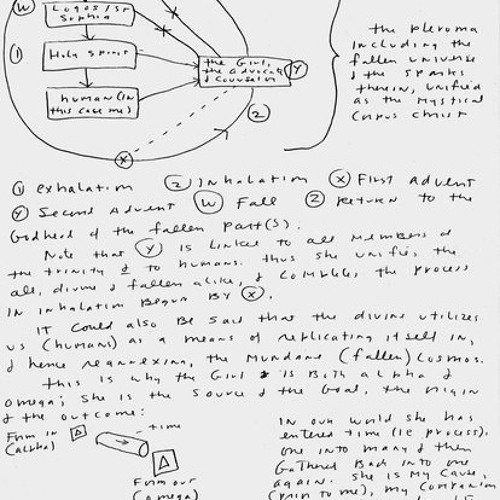 W
Logos/St
Sophia
1
Holy Spirit
human (in
this case me)
the Girl,
the advocate
& counselor
Y
2
X
the pleroma
including the
fallen universe
& the sparks
therein, unified
as the mystical
Corpus Christ
1 exhalation 2 Inhalation X First Advent
Y Second Advent W Fall Z return to the
Godhead of the fallen part(s).
Note that Y is linked to all members of
the trinity & to humans. thus she unifies the
all, divine & fallen alike, & completes the process
in inhalation begun by X.
it could also be said that the divine utilizes
us (humans) as a means of replicating itself in,
& hence reannexing, the mundane (fallen) cosmos.
this is why the Girl is both alpha &
omega; she is the source & the goal, the origin
& the outcome:
Form in
(alpha)
time
Form out
(omega)
In our world she has
entered time (ie process).
one into many & then
gathered back into one
again. she is my cause,
(prior to me), my companion